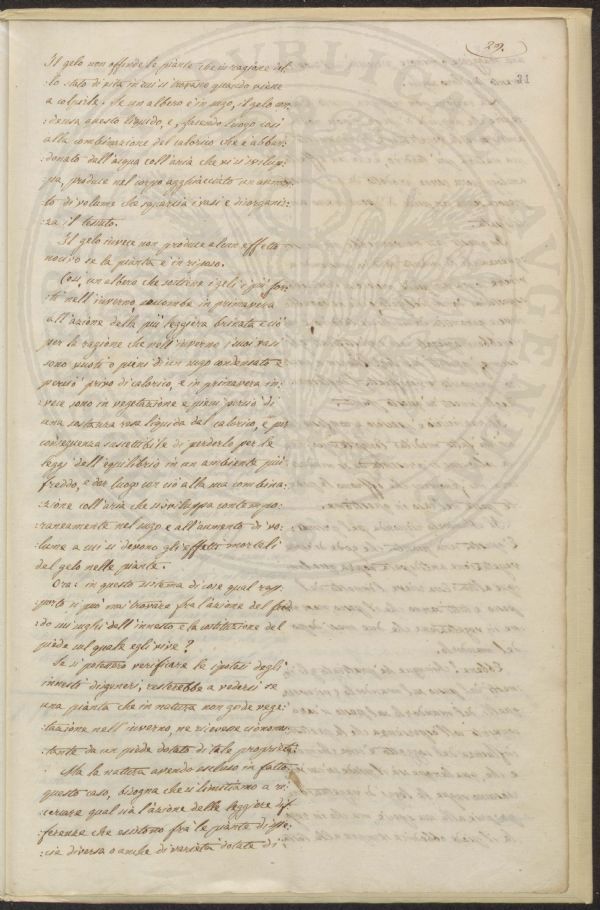 29.
31
Il gelo non offende le piante che in ragione del-
:lo stato di vita in cui si trovano quando viene
a colpirle. Se un albero è in sugo, il gelo con-
:densa questo liquido, e, facendo luogo così
alla combinazione del calorico che è abban-
:donato dall'acqua coll'aria che vi si svilup-
:pa, produce nel corpo agghiacciato un aumen-
:to di volume che squarcia i vasi e disorganiz-
:za il tessuto.
Il gelo invece non produce alcun effetto
nocivo se la pianta è in riposo.
Così, un albero che sostiene i geli i più for-
:ti nell'inverno, soccombe in primavera
all'azione della più leggiera brinata e ciò
per la ragione che nell'inverno i suoi vasi
sono vuoti o pieni di un sugo condensato e
perciò privo di calorico, e in primavera in-
:vece sono in vegetazione e pieni perciò di
una sostanza resa liquida dal calorico, e per
conseguenza suscettibile di perderlo per le
leggi dell'equilibrio in un ambiente più
freddo, e dar luogo con ciò alla sua combina-
:zione coll'aria che si sviluppa contempo-
:raneamente nel sugo e all'aumento di vo-
:lume a cui si devono gli effetti mortali
del gelo nelle piante.
Ora: in questo sistema di cose qual rap-
:porto si può mai trovare fra l'azione del fred-
:do sui sughi dell'innesto e la costituzione del
piede sul quale egli vive?
Se si potessero verificare le ipotesi degli
innesti disgeneri, resterebbe a vedersi se
una pianta che in natura non gode vege-
:tazione nell'inverno, ne ricevesse cionono-
:stante da un piede dotato di tale proprietà.
Ma la natura avendo escluso in fatto
questo caso, bisogna che ci limitiamo a ri-
:cercare qual sia l'azione delle leggiere dif-
:ferenze che esistono fra le piante di spe-
:cie diversa o anche di varietà dotate di